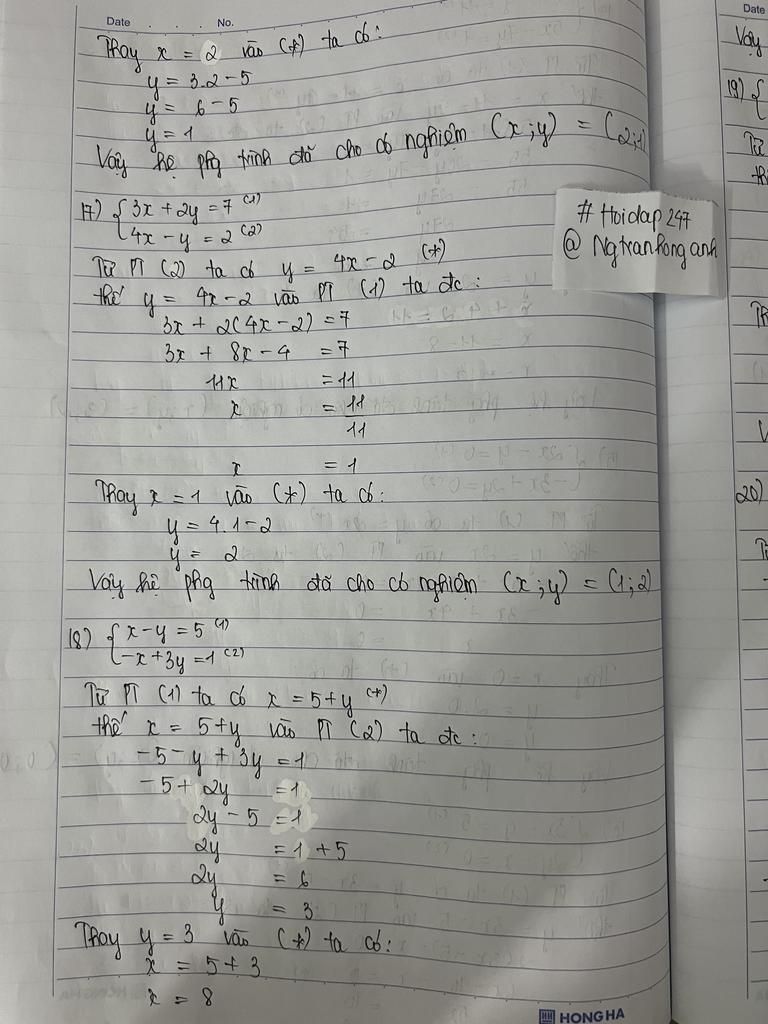 Date No.
Thay x = 2 vào (*) ta có:
y = 3.2 - 5
y = 6 - 5
y = 1
Vậy hệ phg trình đã cho có nghiệm (x;y) = (2;1)
17) { 3x + 2y = 7 (1)
4x - y = 2 (2)
Từ PT (2) ta có y = 4x - 2 (*)
thế y = 4x - 2 vào PT (1) ta đc:
3x + 2(4x - 2) = 7
3x + 8x - 4 = 7
11x = 11
x = 11
11
x = 1
Thay x = 1 vào (*) ta có:
y = 4.1 - 2
y = 2
Vậy hệ phg trình đã cho có nghiệm (x;y) = (1;2)
18) { x - y = 5 (1)
-x + 3y = 1 (2)
Từ PT (1) ta có x = 5 + y (*)
thế x = 5 + y vào PT (2) ta đc:
-5 - y + 3y = 1
-5 + 2y = 1
2y - 5 = 1
2y = 1 + 5
2y = 6
y = 3
Thay y = 3 vào (*) ta có:
x = 5 + 3
x = 8
HONG HA
# Hoidap 247
@ Ngtranhonganh
Date
Vậy
19) {
Từ
thế
20)